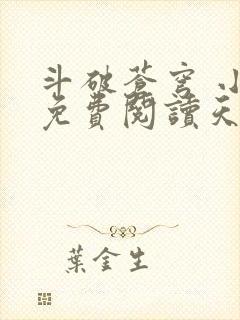 斗破苍穹 小
免費閱讀天
葉金生